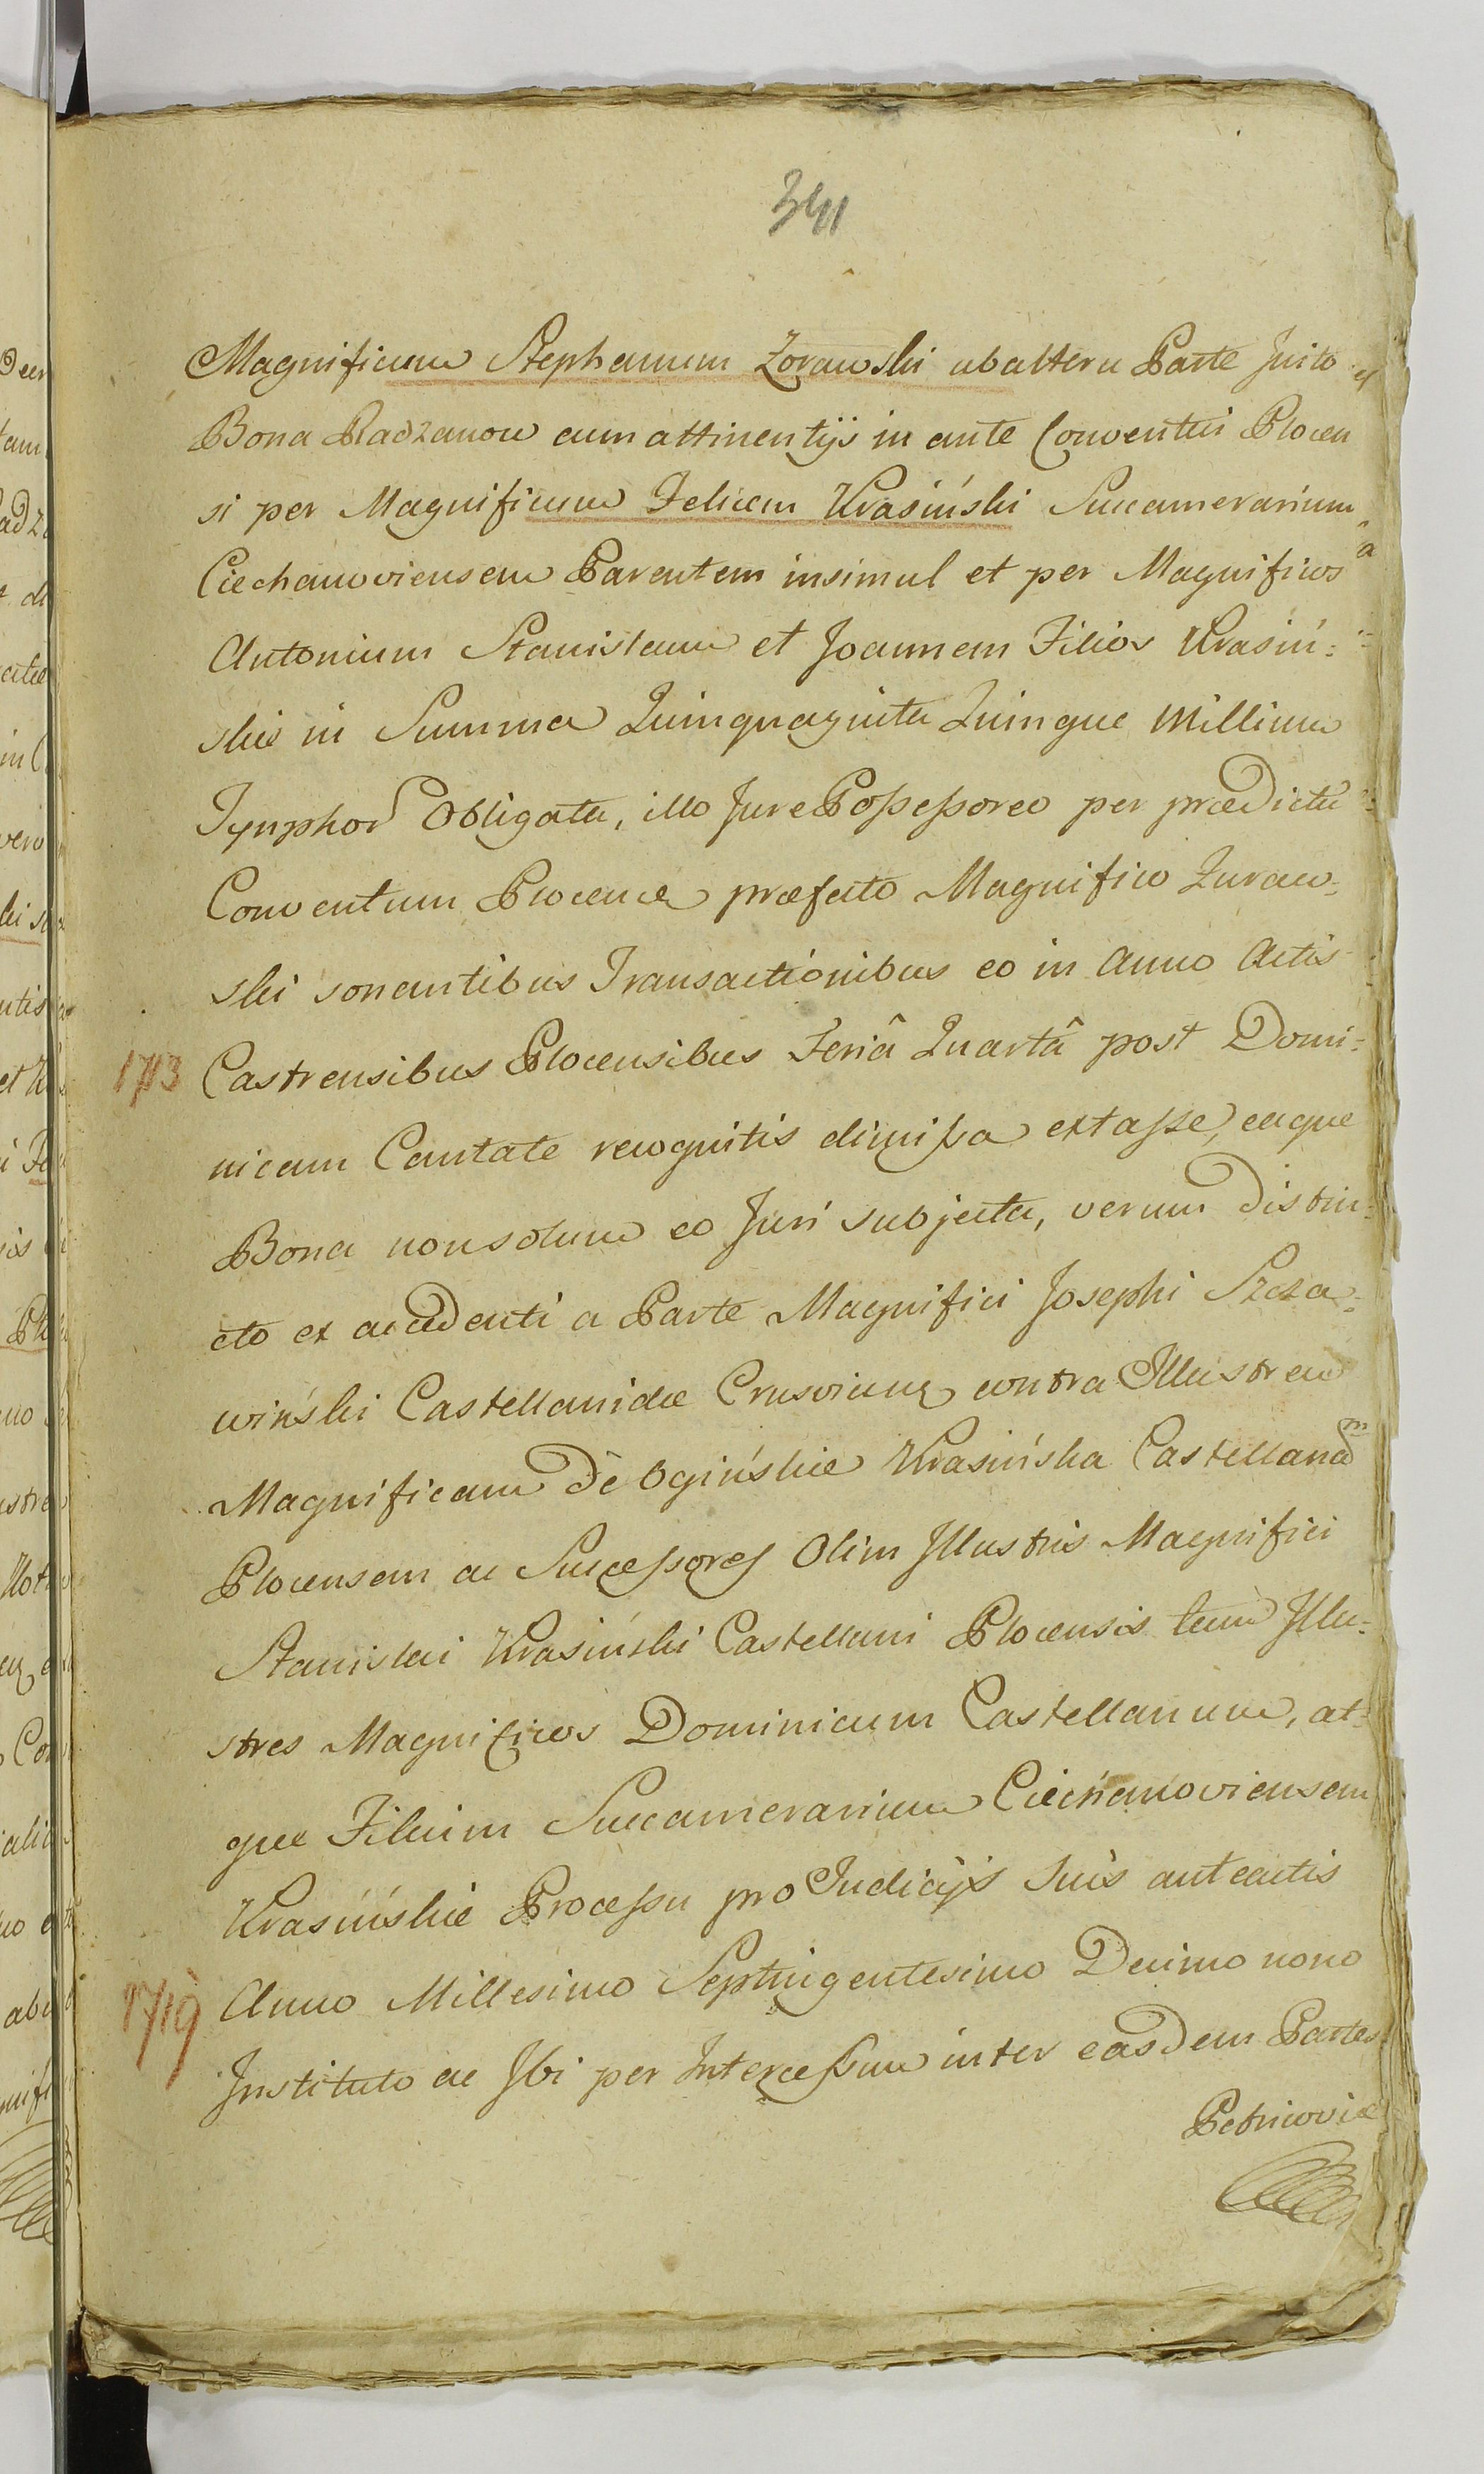 341
Magnificum Stephanum Zorawski ab altera Parte Inito
Bona Radzanow cum attinentijs in ante Conventui Plocen
si per Magnificum Felicem Krasiński Succamerarium
Ciechanoviensem Parentem insimul et per Magnificos
Antonium Stanislaum et Joannem Filios Krasiń:
skie in Summa Quinquaginta Quinque Millium
Tynphor Obligata, illo Jure Possessoreo per prædictū
Conventum Plocense præfato Magnifico Zuraw:
ski sonantibus Transactionibus eo in Anno Actis
1713 Castrensibus Plocensibus Feriâ Quartâ post Domi:
nicam Cantate recognitis dimissa extasse, eaque
Bona non solum eo Juri subjecta, verum distin:
cto ex accedenti a Parte Magnifici Josephi Szcza:
wiński Castellanidæ contra Illustrem
Magnificam De Ogińskie Krasińska Castellanam
Plocensem ac Successores Olim Illustris Magnifici
Stanislai Krasiński Castellani Plocensis tum Illu:
stres Magnificos Dominicum Castellanum, at:
que Filium Succamerarium Ciechanoviensem
Krasińskie Processu pro Judicijs suis anteactis
1719 Anno Millesimo Septingentesimo Decimo nono
Instituto ac Ibi per Intercessum inter easdem Partes
Petricoviæ